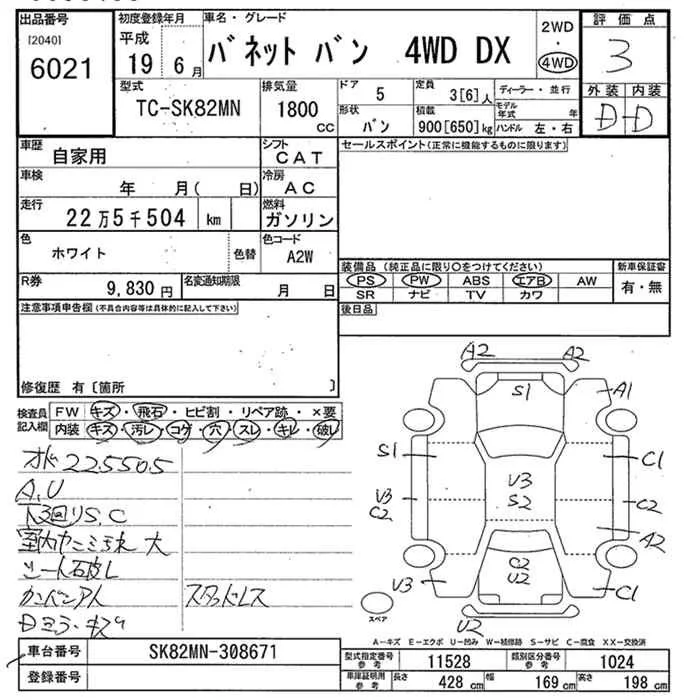 出品番号
[2040]
6021
初度登録年月
平成
19 6 月
車名・グレード
バネット バン 4WD DX
2WD
・
4WD
評価点
3
外装 内装
D-D
型式
TC-SK82MN
排気量
1800 cc
ドア 5
形状 バン
定員 3[6]人
積載 900[650]kg
ディーラー・並行
モデル年式 年
ハンドル 左・右
車歴
自家用
シフト
CAT
車検
年 月( 日)
冷房
AC
走行
22万5千504 km
燃料
ガソリン
色
ホワイト
色替
色コード
A2W
R券
9,830円
名変通知期限
月 日
セールスポイント(正常に機能するものに限ります)
装備品(純正品に限り○をつけてください)
PS PW ABS エアB AW
SR ナビ TV カワ
新車保証書
有・無
後日品
注意事項申告欄(不具合内容等は具体的に記入して下さい)
修復歴 有〔箇所 〕
検査員
記入欄
FW キズ・飛石・ヒビ割・リペア跡・×要
内装 キズ・汚レ・コゲ・穴・スレ・キレ・破レ
オド225505
A,U
下廻りS,C
大
シート破レ
カンバンアト
スタッドレス
Dミラーキズ
A2 A2
S1
A1
S1
C1
V3
C2
V3
S2
C2
A2
C2
U2
V3
C1
U2
スペア
A-キズ E-エクボ U-凹み W-補修跡 S-サビ C-腐食 XX-交換済
車台番号
SK82MN-308671
登録番号
型式指定番号
参考
11528
類別区分番号
参考
1024
車庫証明用
参考
長さ 428 cm
幅 169 cm
高さ 198 cm